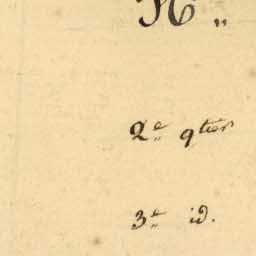 N „
2e qtier
3e id.